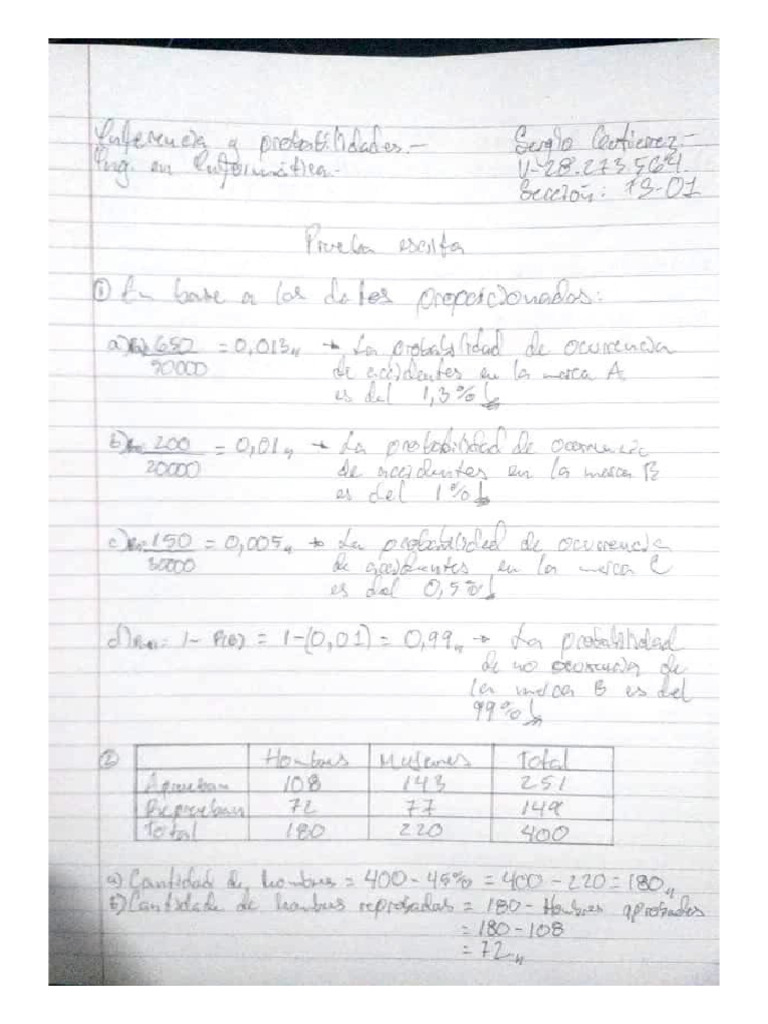 Inferencia y probabilidades.-
Ing. en Informática.-
Sergio Gutierrez.-
V-28.273.564.
Sección: 7S-01
Prueba escrita
① En base a los datos proporcionados:
a) 650/50000 = 0,013 → La probabilidad de ocurrencia
de accidentes en la marca A
es del 1,3%
b) 200/20000 = 0,01 → La probabilidad de ocurrencia
de accidentes en la marca B
es del 1%
c) 150/30000 = 0,005 → La probabilidad de ocurrencia
de accidentes en la marca C
es del 0,5%
d) = 1 - P(B) = 1-(0,01) = 0,99 → La probabilidad
de no ocurrencia de
la marca B es del
99%
②
Hombres Mujeres Total
Aprueban 108 143 251
Reprueban 72 77 149
Total 180 220 400
a) Cantidad de hombres = 400 - 45% = 400 - 220 = 180
b) Cantidad de hombres reprobados = 180 - Hombres aprobados
= 180 - 108
= 72